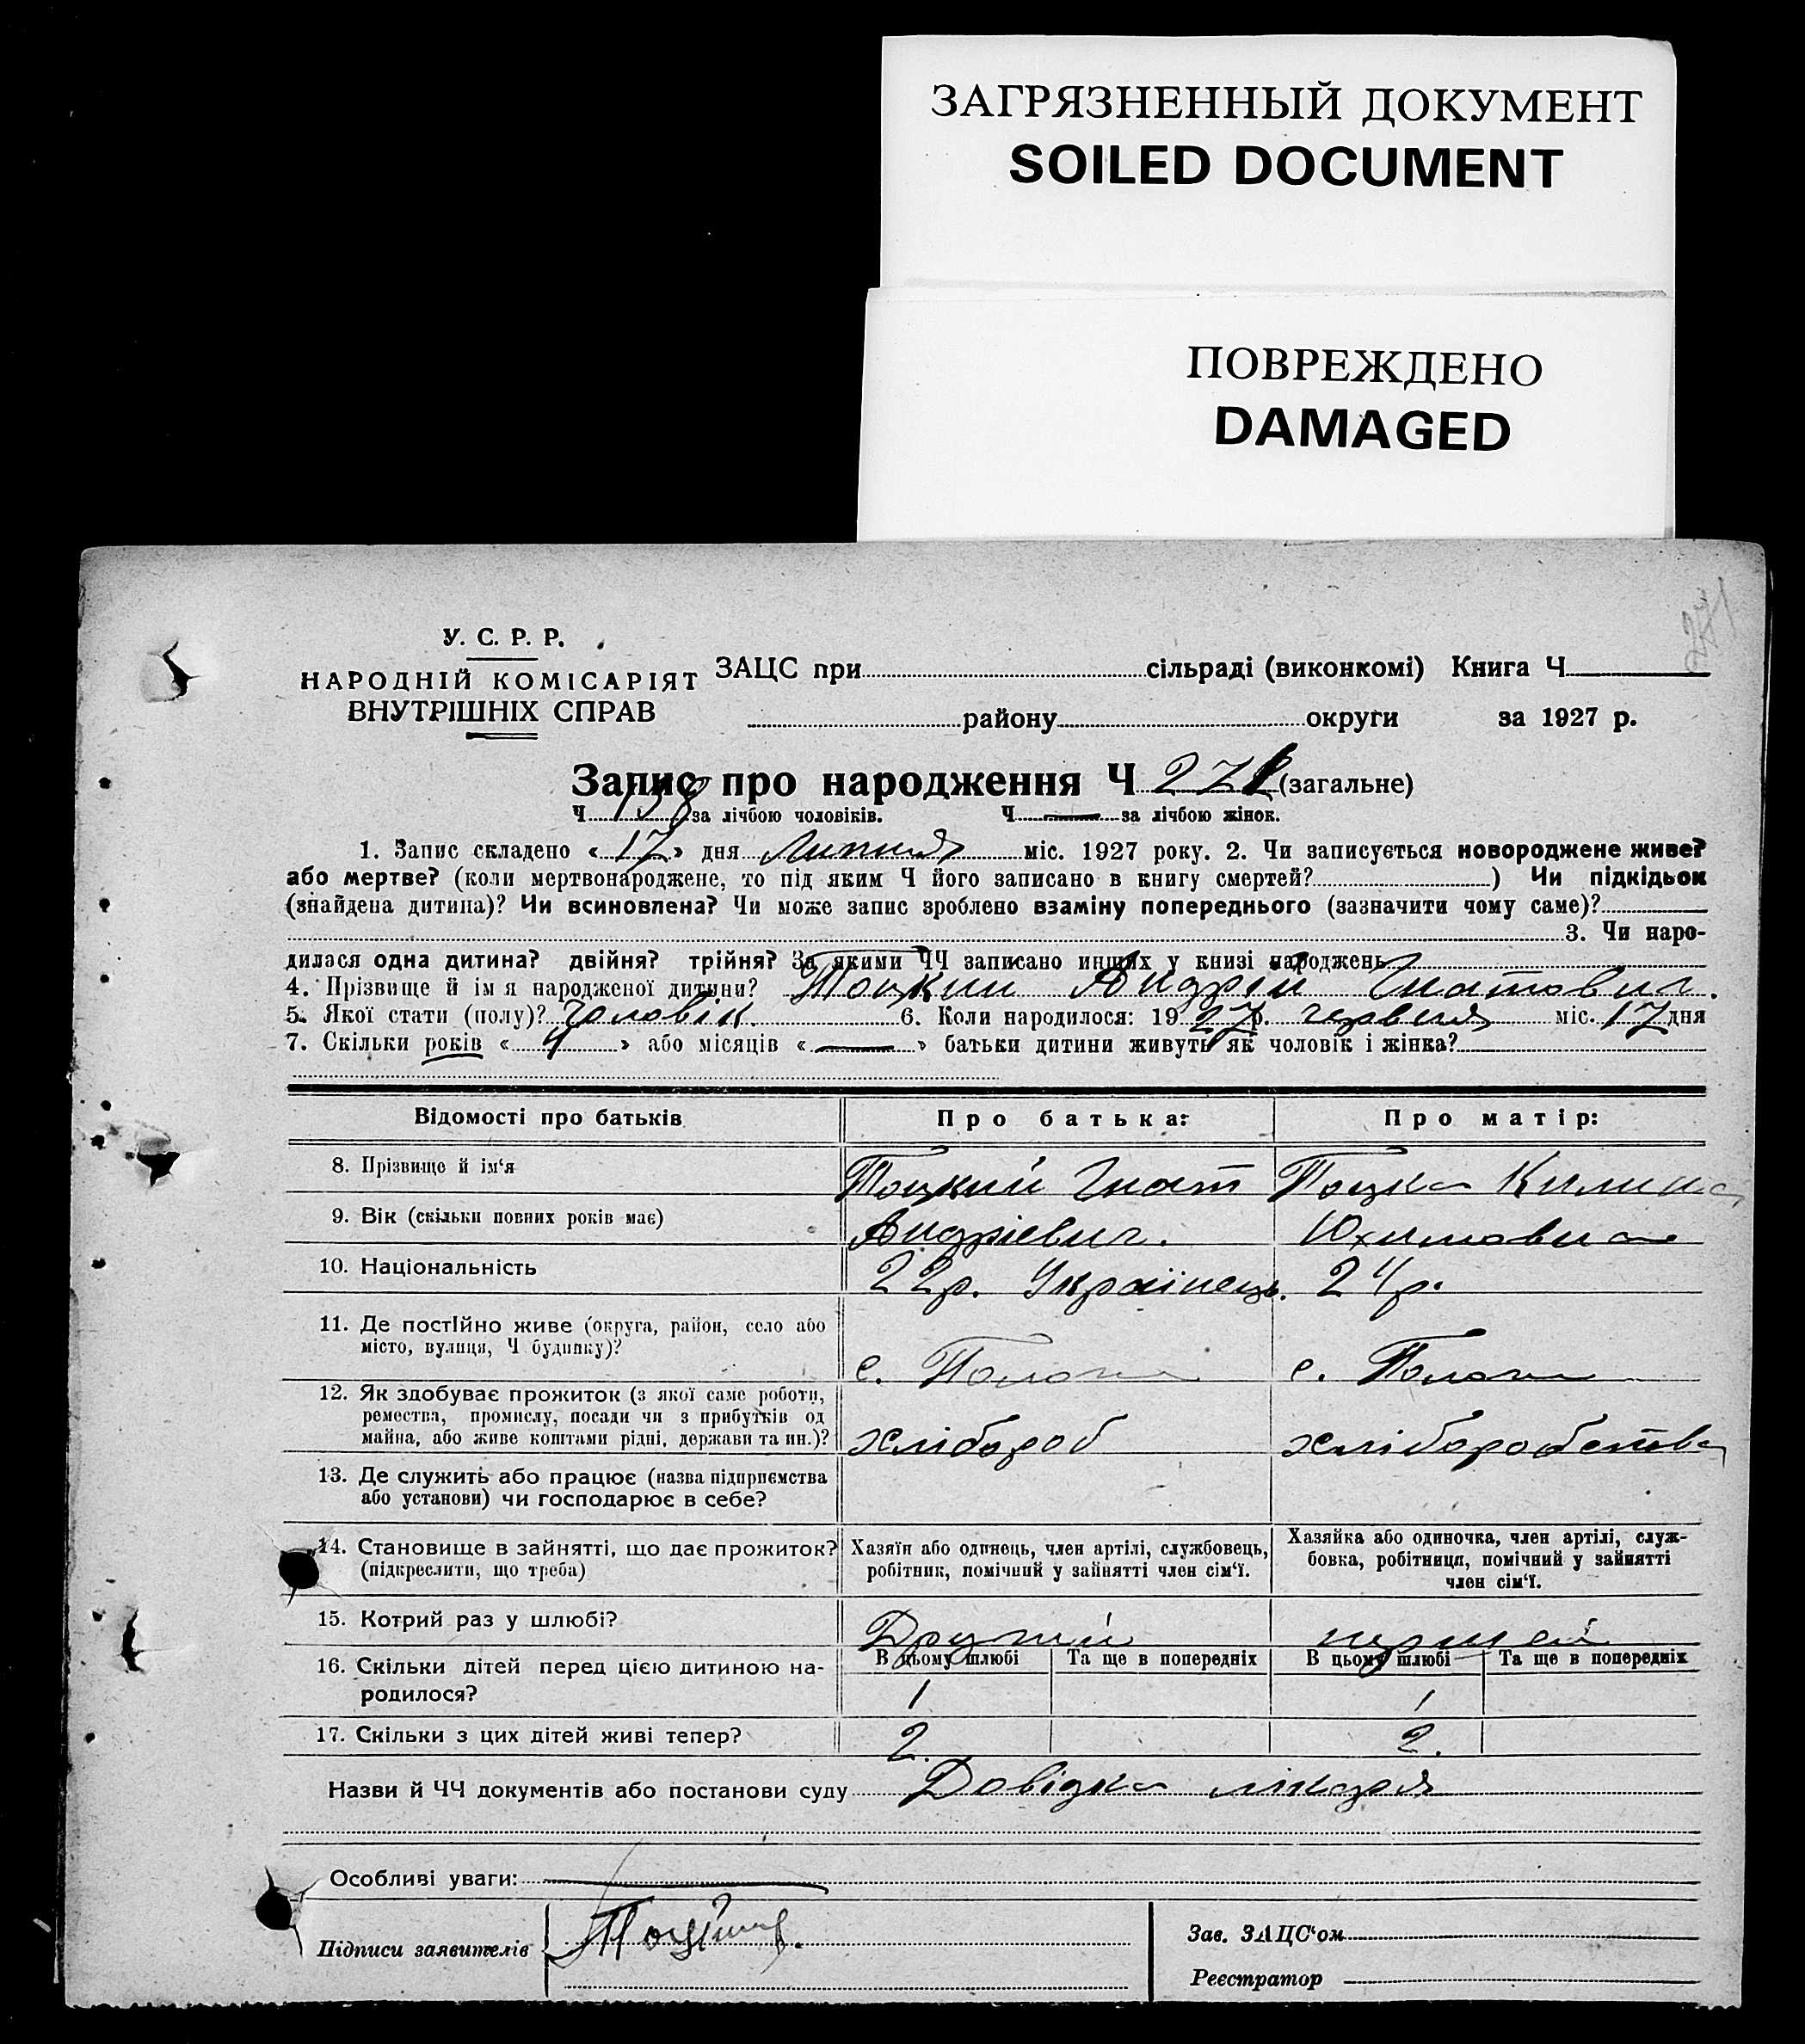 ЗАГРЯЗНЕННЫЙ ДОКУМЕНТ
SOILED DOCUMENT
ПОВРЕЖДЕНО
DAMAGED
271
У. С. Р. Р.
НАРОДНІЙ КОМІСАРІЯТ
ВНУТРІШНІХ СПРАВ
ЗАЦС при сільраді (виконкомі) Книга Ч
району округи за 1927 р.
Запис про народження Ч 271 (загальне)
Ч 138 за лічбою чоловіків. Ч — за лічбою жінок.
1. Запис складено «17» дня Липня міс. 1927 року. 2. Чи записується новороджене живе?
або мертве? (коли мертвонароджене, то під яким Ч його записано в книгу смертей? ) Чи підкідьок
(знайдена дитина)? Чи всиновлена? Чи може запис зроблено взаміну попереднього (зазначити чому саме)?
3. Чи наро-
дилася одна дитина? двійня? трійня? За якими ЧЧ записано инших у книзі народжень
4. Прізвище й ім я народженої дитини? Тоцкий Андрій Гнатович.
5. Якої стати (полу)? Чоловік. 6. Коли народилося: 1927 р. червня міс. 17 дня
7. Скільки років «4» або місяців «—» батьки дитини живуть як чоловік і жінка?
Відомості про батьків Про батька: Про матір:
8. Прізвище й ім‘я Тоцкий Гнат Тоцка Килина
9. Вік (скільки повних років має) Андрієвич. Юхимовна
10. Національність 22р. Українець. 24р.
11. Де постійно живе (округа, район, село або
місто, вулиця, Ч будинку)? с. с.
12. Як здобуває прожиток (з якої саме роботи,
ремества, промислу, посади чи з прибутків од
майна, або живе коштами рідні, держави та ин.)? хлібороб хліборобство
13. Де служить або працює (назва підприємства
або установи) чи господарює в себе?
14. Становище в зайнятті, що дає прожиток?
(підкреслити, що треба)
Хазяїн або одинець, член артілі, службовець,
робітник, помічний у зайнятті член сім‘ї.
Хазяйка або одиночка, член артілі, служ-
бовка, робітниця, помічний у зайнятті
член сім‘ї.
15. Котрий раз у шлюбі? Другий перший
16. Скільки дітей перед цією дитиною на-
родилося?
В цьому шлюбі Та ще в попередніх В цьому шлюбі Та ще в попередніх
1 1
17. Скільки з цих дітей живі тепер? 2. 2.
Назви й ЧЧ документів або постанови суду Довідка лікаря
Особливі уваги: —
Підписи заявителів
Зав. ЗАЦС‘ом
Реєстратор